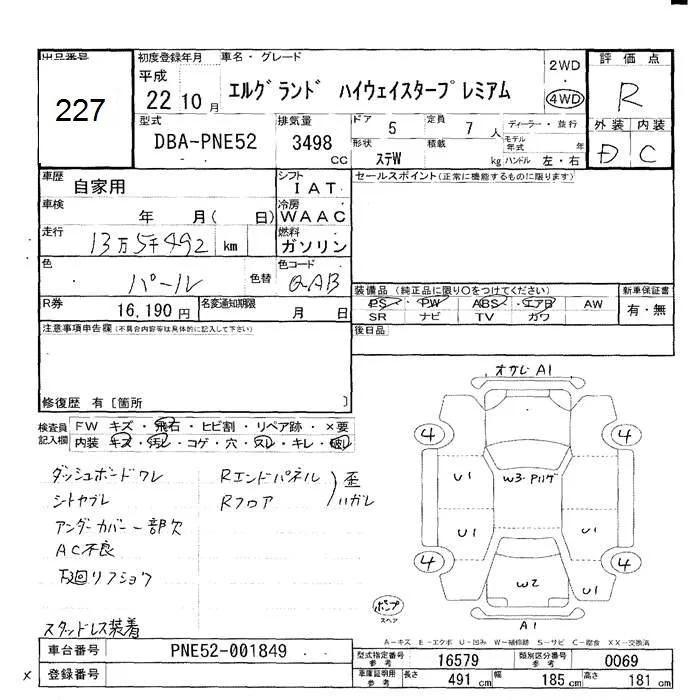 出品番号
227
初度登録年月
平成
22 10 月
車名・グレード
エルグランド ハイウェイスタープレミアム
2WD
・
4WD
評価点
R
外装 内装
D C
型式
DBA-PNE52
排気量
3498 cc
ドア 5
定員 7 人
ディーラー・並行
モデル年式 年
形状 ステW
積載 kg
ハンドル 左・右
車歴
自家用
シフト
IAT
セールスポイント(正常に機能するものに限ります)
車検
年 月( 日)
冷房
WAAC
走行
13万5千492 km
燃料
ガソリン
色
パール
色替
色コード
QAB
装備品 (純正品に限り○をつけてください)
PS PW ABS エアB AW
SR ナビ TV カワ
新車保証書
有・無
R券
16,190 円
名変通知期限
月 日
後日品
注意事項申告欄(不具合内容等は具体的に記入して下さい)
修復歴 有 [箇所 ]
検査員記入欄
FW キズ・飛石・ヒビ割・リペア跡・×要
内装 キズ・汚レ・コゲ・穴・スレ・キレ・破レ
ダッシュボードワレ
シトヤブレ
アンダーカバー一部欠
AC不良
下廻リフショク
スタッドレス装着
Rエンドパネル
Rフロア
歪
ハガレ
オサレ A1
4 4
U1
W3・Pハゲ
U1 U1
4 4
W2
U1
ポンプ
スペア
A1
A-キズ E-エクボ U-凹み W-補修跡 S-サビ C-腐食 XX-交換済
車台番号
PNE52-001849
登録番号
×
型式指定番号 参考
16579
類別区分番号 参考
0069
車庫証明用 参考
長さ 491 cm
幅 185 cm
高さ 181 cm